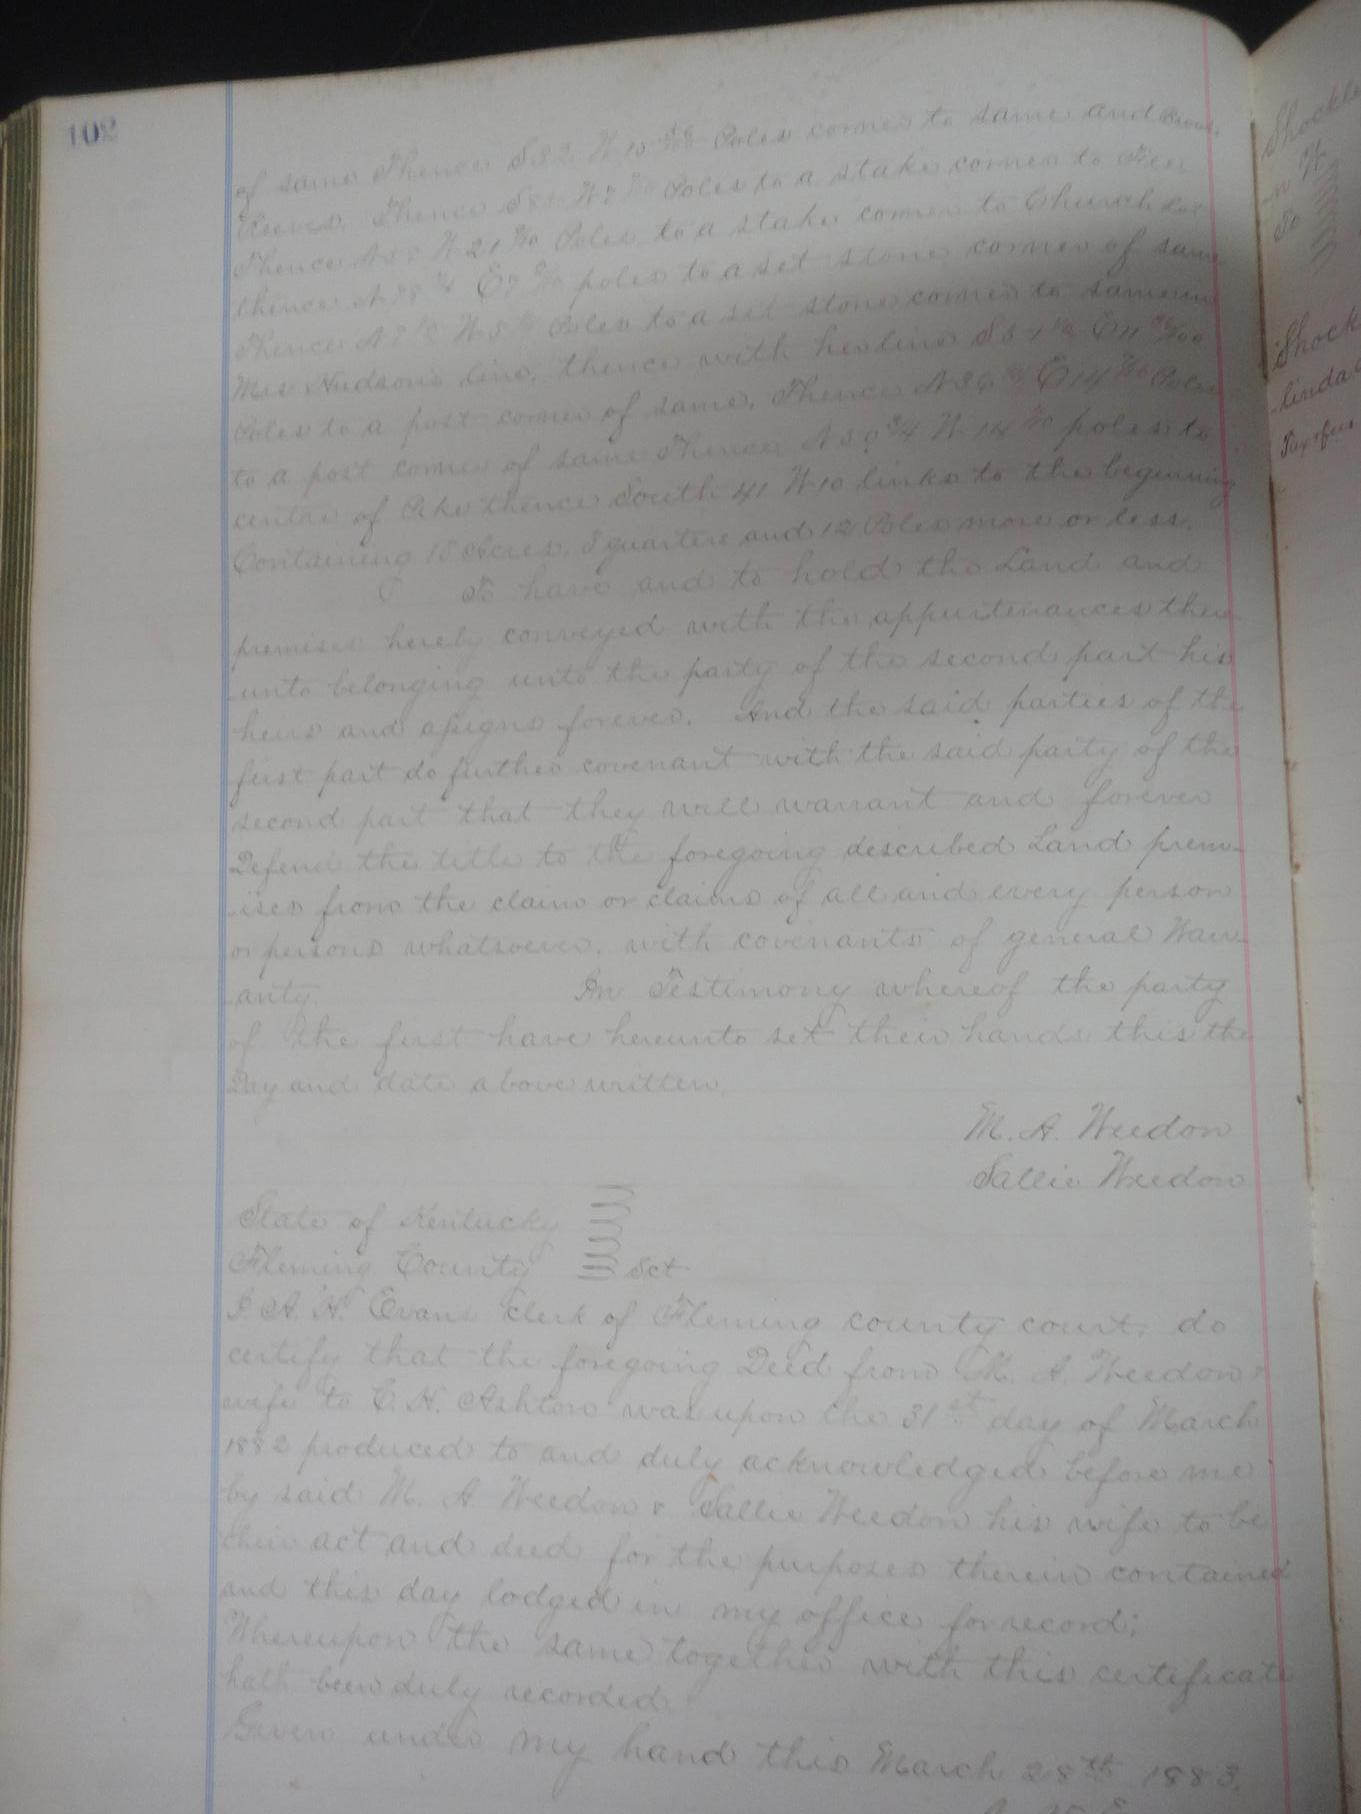 102
of same Thence S32 W 15 Poles corner to same and
Reeves. Thence S W 7 Poles to a stake corner to
Thence N W 21 Poles to a stake corner to Church Lot
thence N 78 1/4 E 7 poles to a set stone corner of same
Thence N W 5 Poles to a set stone corner to same in
Mrs Hudsons line, thence with her line S E 11
Poles to a post corner of same, Thence N E 14 Poles
to a post corner of same Thence N 50 3/4 W 14 poles to
centre of Pike thence South 41 W 10 links to the beginning
Containing 18 Acres, 3 quarters and 12 Poles more or less.
To have and to hold the Land and
premises hereby conveyed with the appurtenances there
unto belonging unto the party of the second part his
heirs and assigns forever. And the said parties of the
first part do further covenant with the said party of the
second part that they will warrant and forever
Defend the title to the foregoing described Land prem-
-ises from the claim or claims of all and every person
or persons whatsoever. with covenants of general Warr-
-anty. In Testimony whereof the party
of the first have hereunto set their hands this the
Day and date above written.
M. A. Weedon
Sallie Weedon
State of Kentucky
Fleming County Sct
I A. H. Evans Clerk of Fleming county court, do
certify that the foregoing Deed from M. A. Weedon &
wife to C. H. Ashton was upon the 31st day of March
1882 produced to and duly acknowledged before me
by said M. A Weedon & Sallie Weedon his wife to be
their act and deed for the purposes therein contained
and this day lodged in my office for record;
Whereupon the same together with this certificate
hath been duly recorded
Given under my hand this March 28th 1883.
Shock
linda